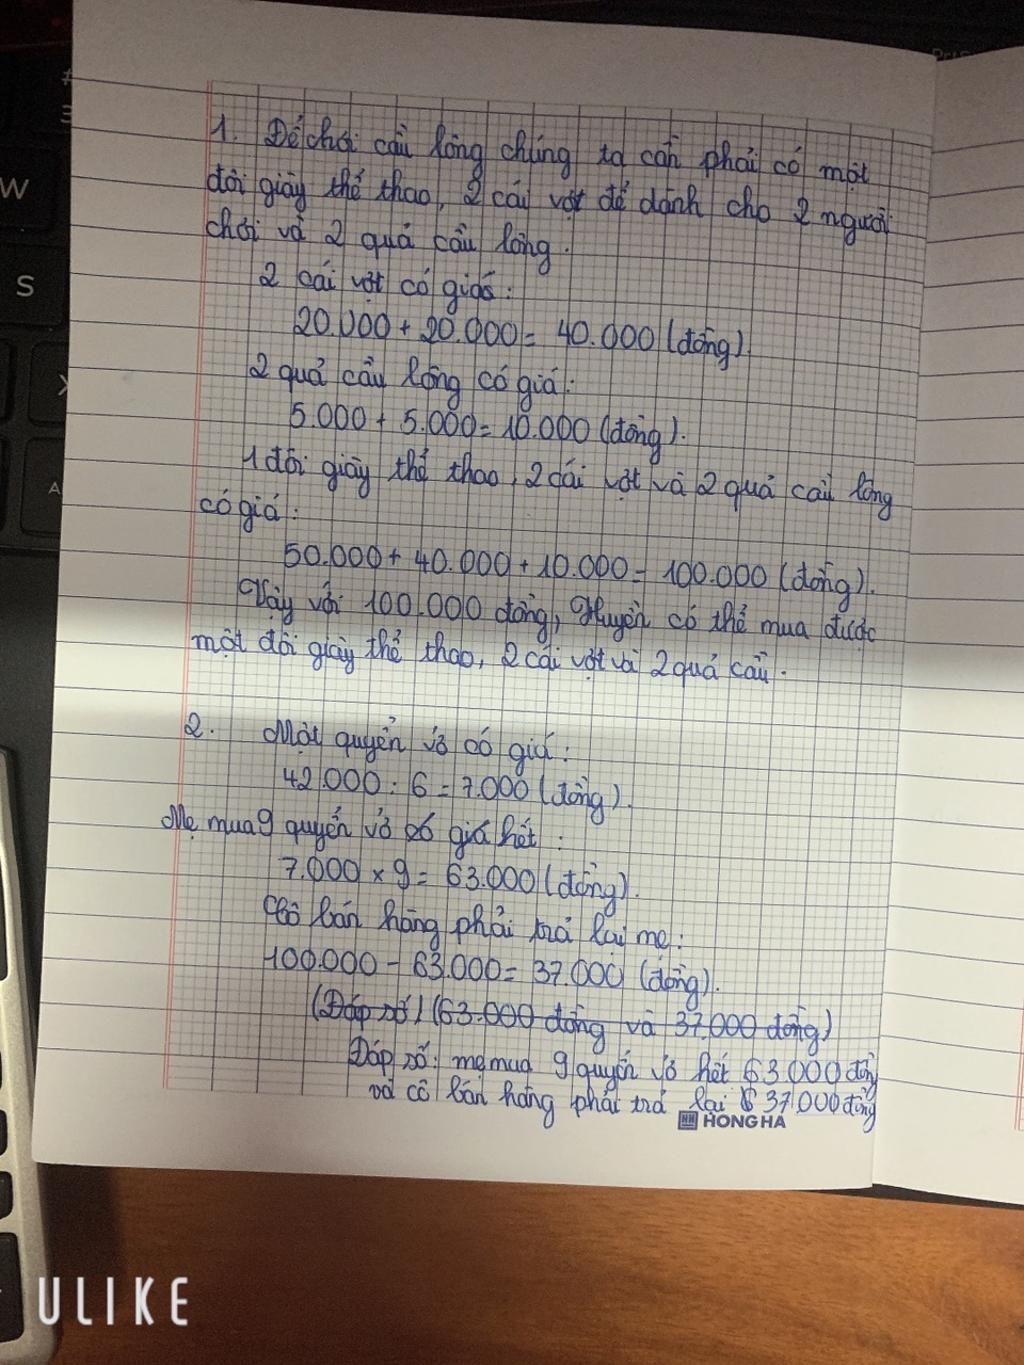 1. Để chơi cầu lông chúng ta cần phải có một
đôi giày thể thao, 2 cái vợt để dành cho 2 người
chơi và 2 quả cầu lông.
2 cái vợt có giá:
20.000 + 20.000 = 40.000 (đồng)
2 quả cầu lông có giá:
5.000 + 5.000 = 10.000 (đồng).
1 đôi giày thể thao, 2 cái vợt và 2 quả cầu lông
có giá:
50.000 + 40.000 + 10.000 = 100.000 (đồng).
Vậy với 100.000 đồng, Huyền có thể mua được
một đôi giày thể thao, 2 cái vợt và 2 quả cầu.
2. Một quyển vở có giá:
42.000 : 6 = 7.000 (đồng).
Mẹ mua 9 quyển vở có giá hết:
7.000 x 9 = 63.000 (đồng).
Cô bán hàng phải trả lại mẹ:
100.000 - 63.000 = 37.000 (đồng).
(Đáp số) (63.000 đồng và 37.000 đồng)
Đáp số: mẹ mua 9 quyển vở hết 63.000 đồng
và cô bán hàng phải trả lại 37.000 đồng
HONG HA
ULIKE
W
S
A
#
3